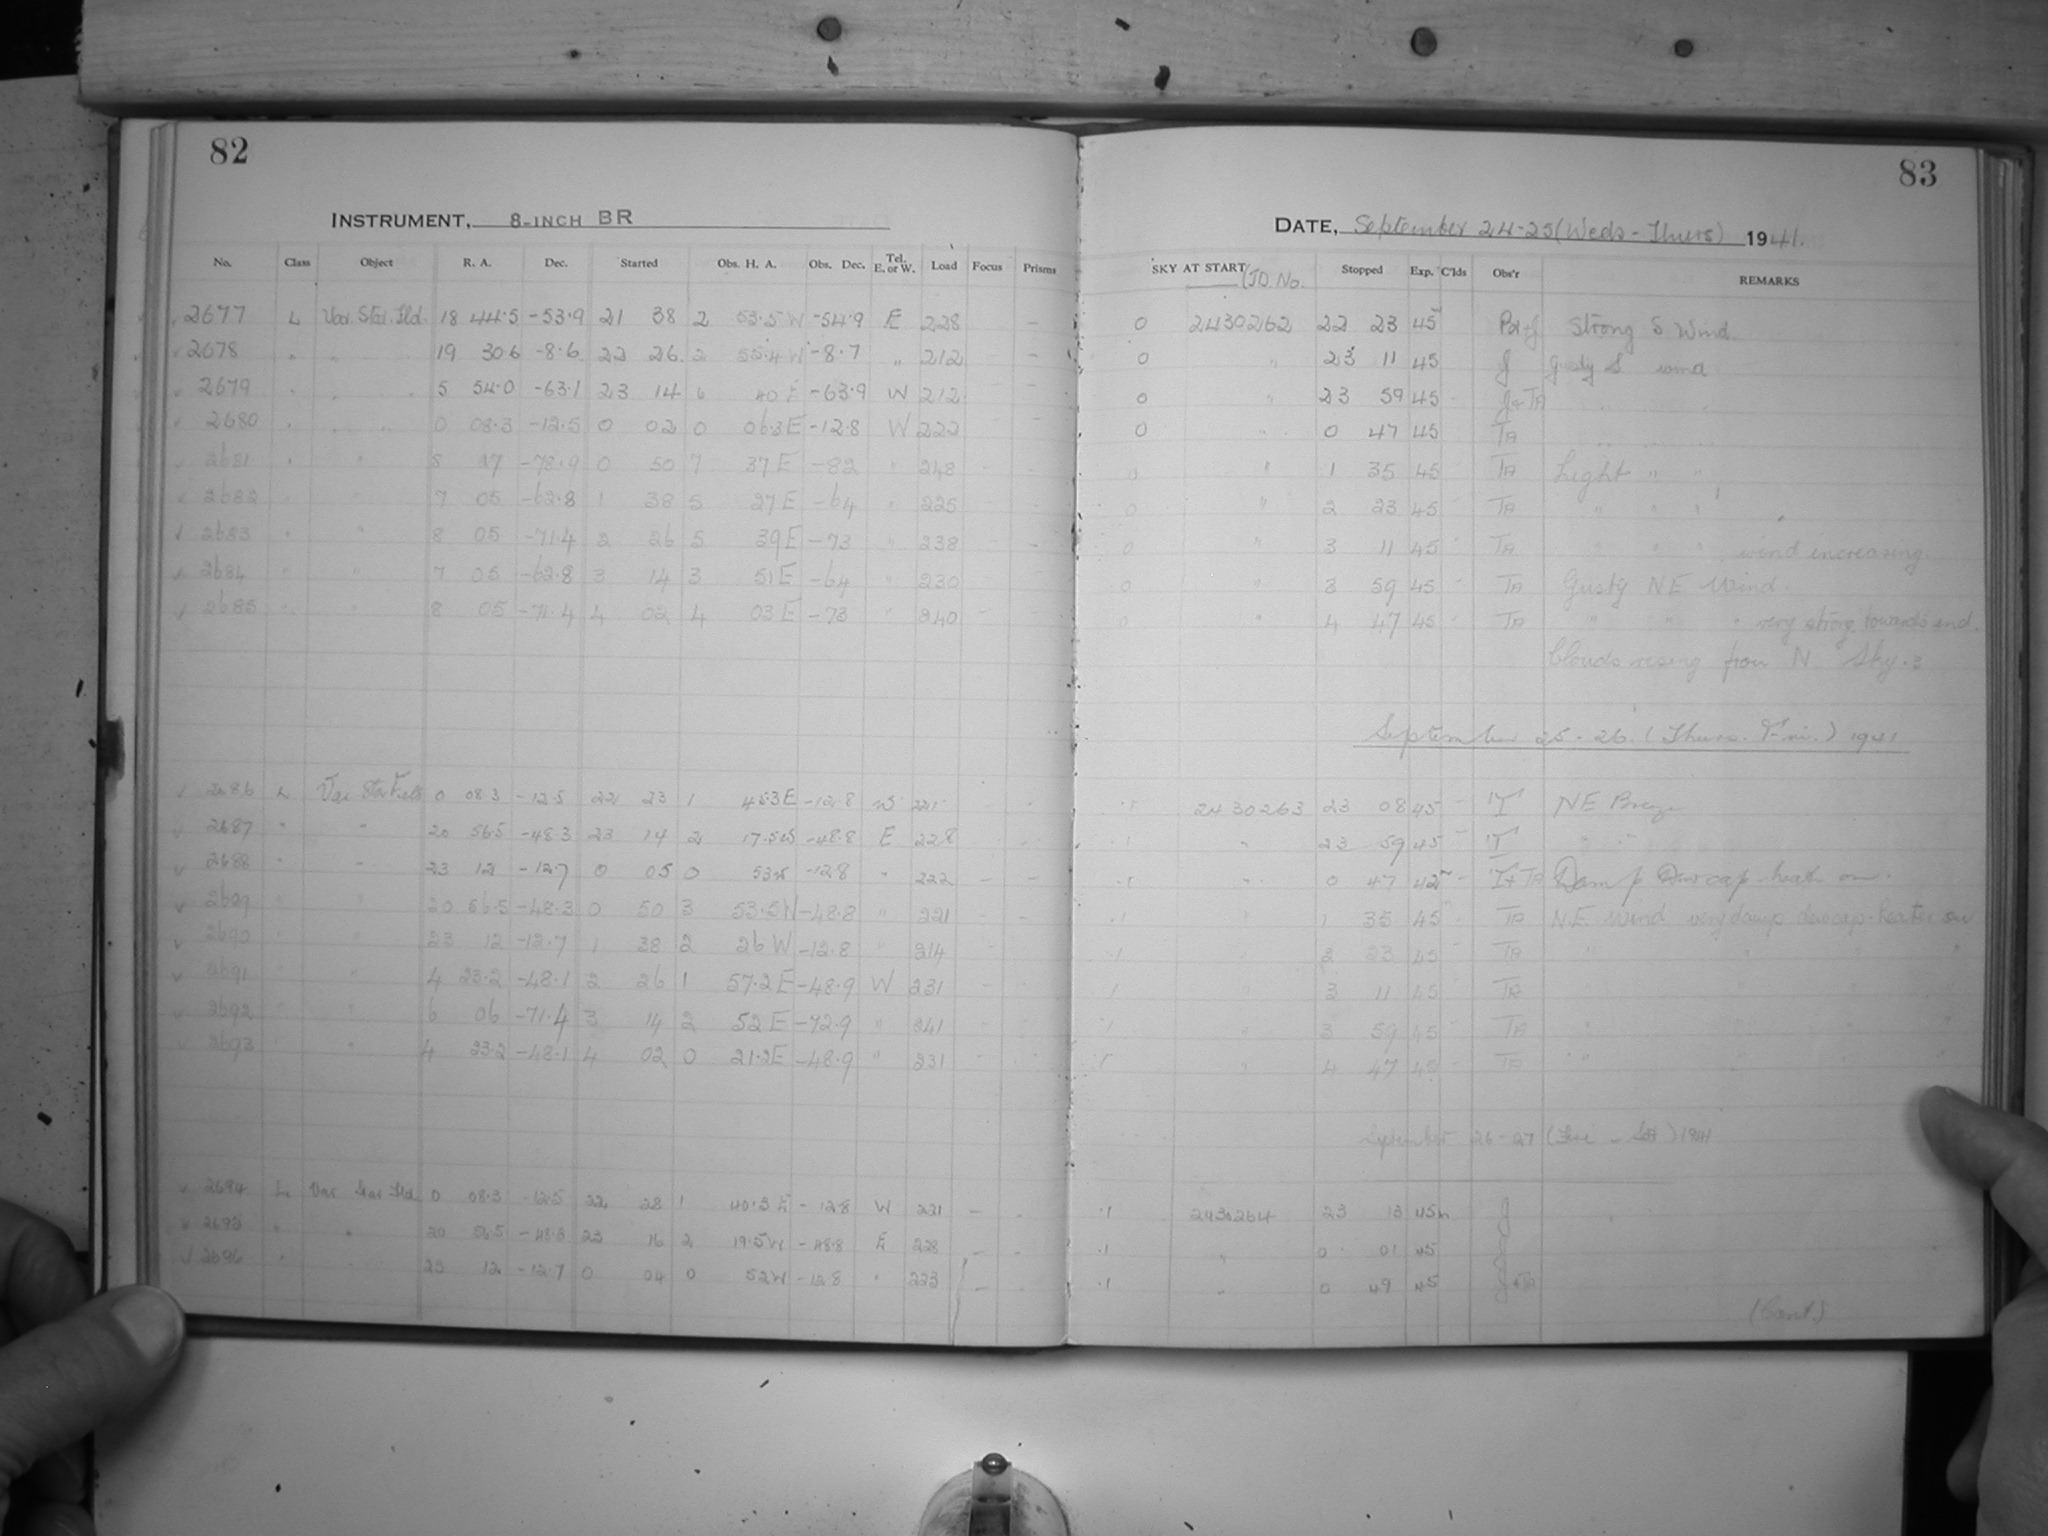 82
INSTRUMENT, 8-INCH BR
No. Class Object R. A. Dec. Started Obs. H. A. Obs. Dec. Tel. E. or W. Load Focus Prisms
2677 L Var. Star. Fld. 18 44.5 -53.9 21 38 2 53.5 W -54.9 E 228 –
2678 " " " 19 30.6 -8.6 22 26 2 55.4 W -8.7 " 212 –
2679 " " " 5 54.0 -63.1 23 14 6 40 E -63.9 W 212
2680 " " " 0 08.3 -12.5 0 02 0 06.3 E -12.8 W 222
2681 " " 8 17 -78.9 0 50 7 37 E -82 " 248
2682 " " 7 05 -62.8 1 38 5 27 E -64 " 225
2683 " " 8 05 -71.4 2 26 5 39 E -73 " 238
2684 " " 7 05 -62.8 3 14 3 51 E -64 " 230
2685 " " 8 05 -71.4 4 02 4 03 E -73 " 240
2686 L Var Star Field 0 08.3 -12.5 22 23 1 45.3 E -12.8 W 221
2687 " " 20 56.5 -48.3 23 14 2 17.5 W -48.8 E 228
2688 " " 23 12 -12.7 0 05 0 53 W -12.8 " 222 – –
2689 " " 20 56.5 -48.3 0 50 3 53.5 W -48.8 " 221 – –
2690 " " 23 12 -12.7 1 38 2 26 W -12.8 " 214
2691 " " 4 23.2 -48.1 2 26 1 57.2 E -48.9 W 231
2692 " " 6 06 -71.4 3 14 2 52 E -72.9 " 241
2693 " " 4 23.2 -48.1 4 02 0 21.2 E -48.9 " 231
2694 L Var Star Fld 0 08.3 -12.5 22 28 1 40.3 E -12.8 W 221 – –
2695 " " 20 56.5 -48.3 23 16 2 19.5 W -48.8 E 228 – –
2696 " " 23 12 -12.7 0 04 0 52 W -12.8 " 223 – –
83
DATE, September 24-25 (Weds - Thurs) 1941.
SKY AT START (JD. No. Stopped Exp. C'lds Obs'r REMARKS
0 2430262 22 23 45 Strong S Wind
0 " 23 11 45 J Gusty S wind
0 " 23 59 45 J + TA " " "
0 " 0 47 45 TA " " "
0 " 1 35 45 TA Light " "
0 " 2 23 45 TA " " "
0 " 3 11 45 TA " " " wind increasing.
0 " 3 59 45 TA Gusty NE Wind.
0 " 4 47 45 TA " " " very strong towards end.
Clouds rising from N. Sky.
September 25-26. (Thurs. Fri.) 1941
2430263 23 08 45 T NE Breeze
.1 " 23 59 45 T " "
" 0 47 42 T + TA Damp Dewcap heater on.
.1 " 1 35 45 TA N.E. Wind very damp dewcap-heater on
.1 " 2 23 45 TA " " "
.1 " 3 11 45 TA " " "
.1 " 3 59 45 TA " " "
" 4 47 45 TA " " "
September 26-27 (Sat) 1941
.1 2430264 23 13 45 J
.1 " 0 01 45 J
.1 " 0 49 45 J + TA
(Cont.)